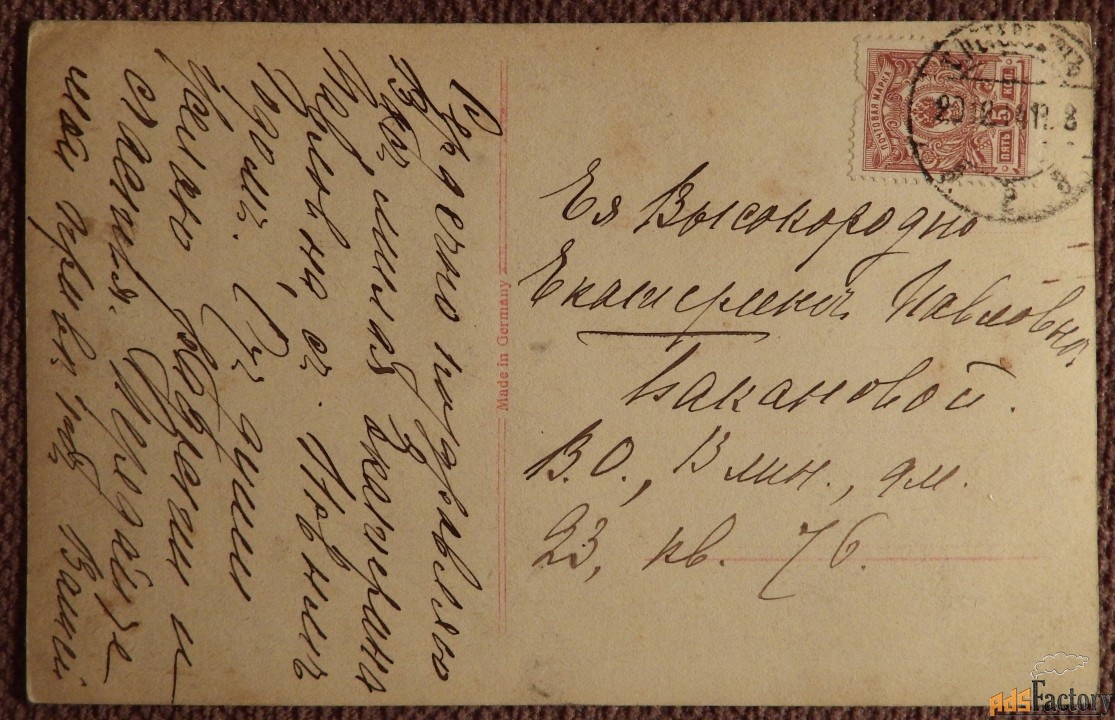 Сердечно поздравляю
Вас, милая Екатерина
Павловна, съ
Новымъ
годом. Отъ души
желаю
счастья. Передайте
мой привѣтъ Вашим
Made in Germany
ПОЧТОВАЯ МАРКА
5 КОП
ПЯТЬ
20.12.14
Ея Высокородию
Екатеринѣ Павловнѣ
Бакановой.
В.О., 13 лин., дм.
23, кв. 76.
AdsFactory